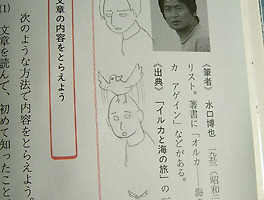 《筆者》 水口博也 一九五(昭和二
リスト。著書に「オルカ―海
カ アゲイン」などがある。
《出典》「イルカと海の旅」の一
文章の内容をとらえよう
次のような方法で内容をとらえよう。
(1) 文章を読んで、初めて知ったこと